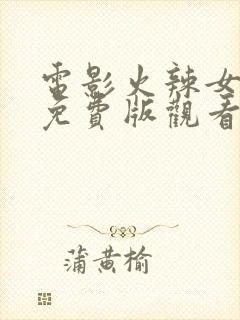 電影火辣女
免費版觀看
蒲黄榆